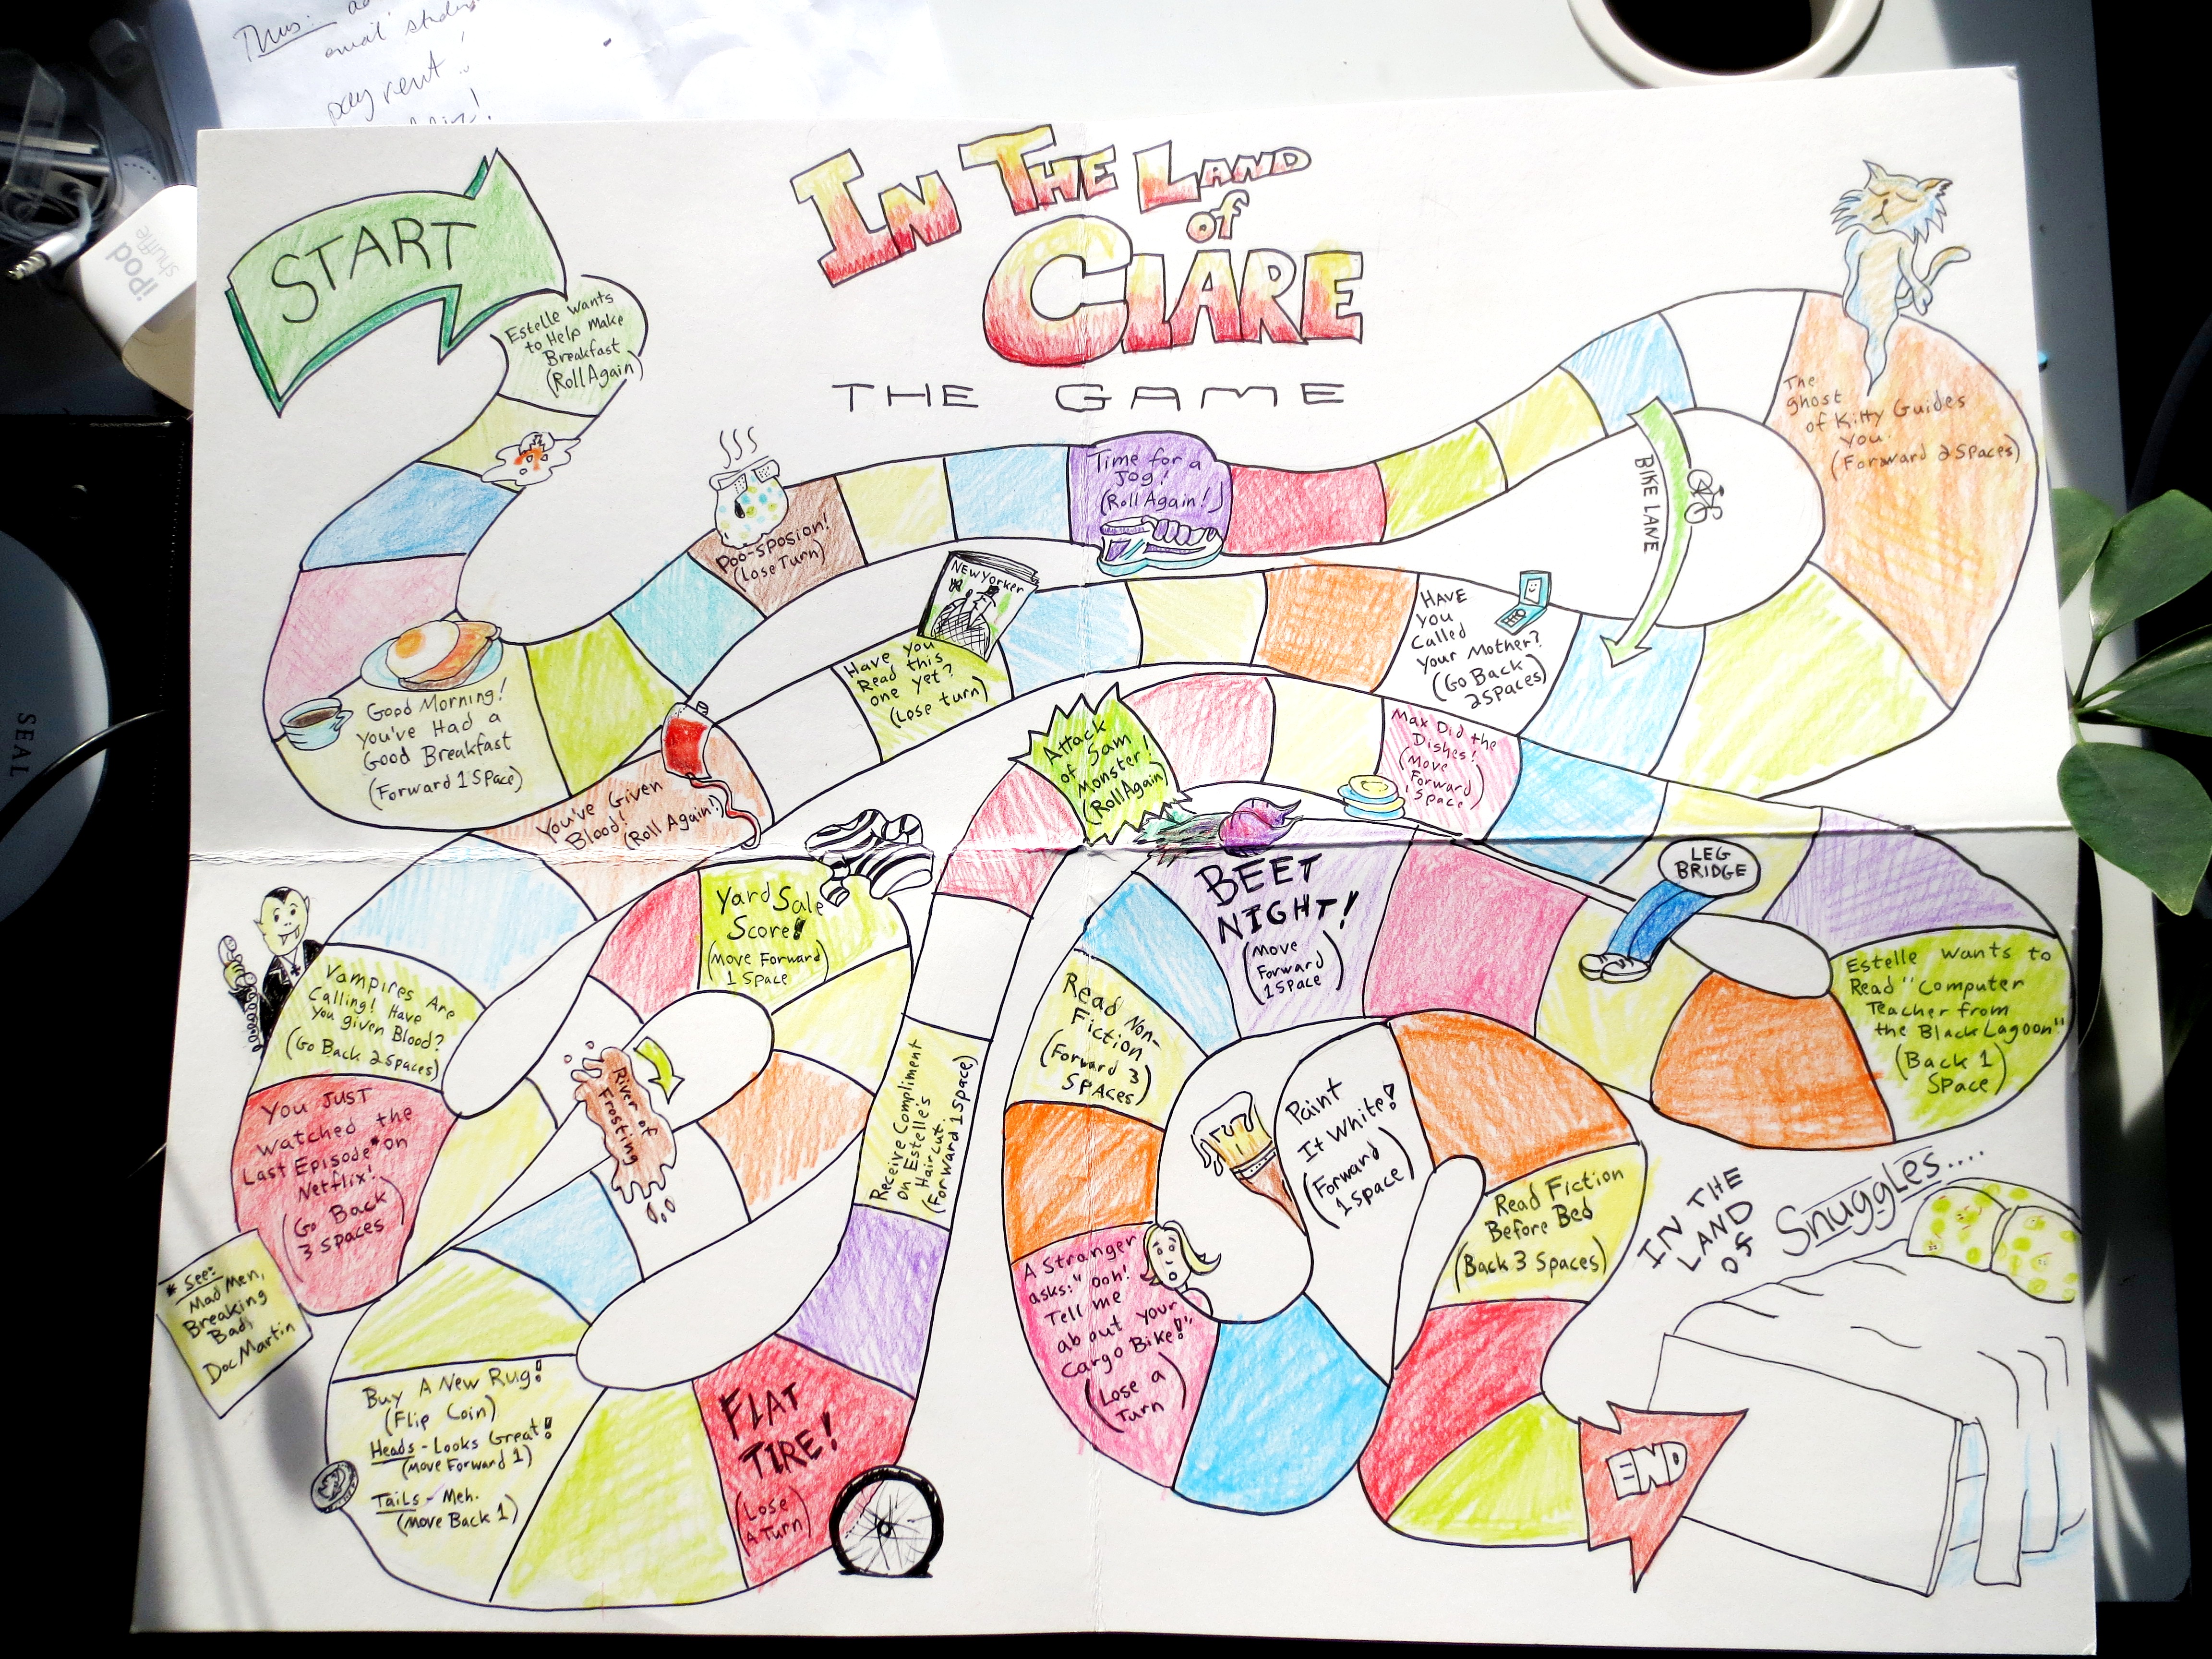 Thurs:
email
pay rent!
iPod
shuffle
SEAL
IN THE LAND
of
CLARE
THE GAME
START
Estelle Wants
to Help Make
Breakfast
(Roll Again)
Good Morning!
You've Had a
Good Breakfast
(Forward 1 Space)
Poo-sposion!
(Lose Turn)
Time for a
Jog!
(Roll Again!)
BIKE LANE
The
ghost
of Kitty Guides
You.
(Forward 2 Spaces)
HAVE
YOU
Called
Your Mother?
(Go Back
2 Spaces)
NEW YORKER
Have you
Read this
one yet?
(Lose turn)
You've Given
Blood!
(Roll Again!)
Vampires Are
Calling! Have
You given Blood?
(Go Back 2 Spaces)
You Just
Watched the
Last Episode* on
Netflix!
(Go Back
3 Spaces)
* See:
Mad Men,
Breaking
Bad,
Doc Martin
River of
Frosting
Yard Sale
Score!
(Move Forward)
1 Space
Buy A New Rug!
(Flip Coin)
Heads - Looks Great!
(Move Forward 1)
Tails - Meh.
(Move Back 1)
FLAT
TIRE!
(Lose
A Turn)
Receive Compliment
on Estelle's
Haircut.
(Forward 1 Space)
Attack
of Sam
Monster!
(Roll Again)
Max Did the
Dishes!
(Move
Forward
1 Space)
LEG
BRIDGE
Estelle wants to
Read "Computer
Teacher from
the Black Lagoon"
(Back 1
Space)
BEET
NIGHT!
(Move
Forward
1 Space)
Read Non-
Fiction
(Forward 3
Spaces)
A Stranger
asks: "Ooh!
Tell me
about your
Cargo Bike!"
(Lose a
Turn)
Paint
It White!
(Forward
1 Space)
Read Fiction
Before Bed
(Back 3 Spaces)
END
IN THE
LAND
OF
Snuggles....